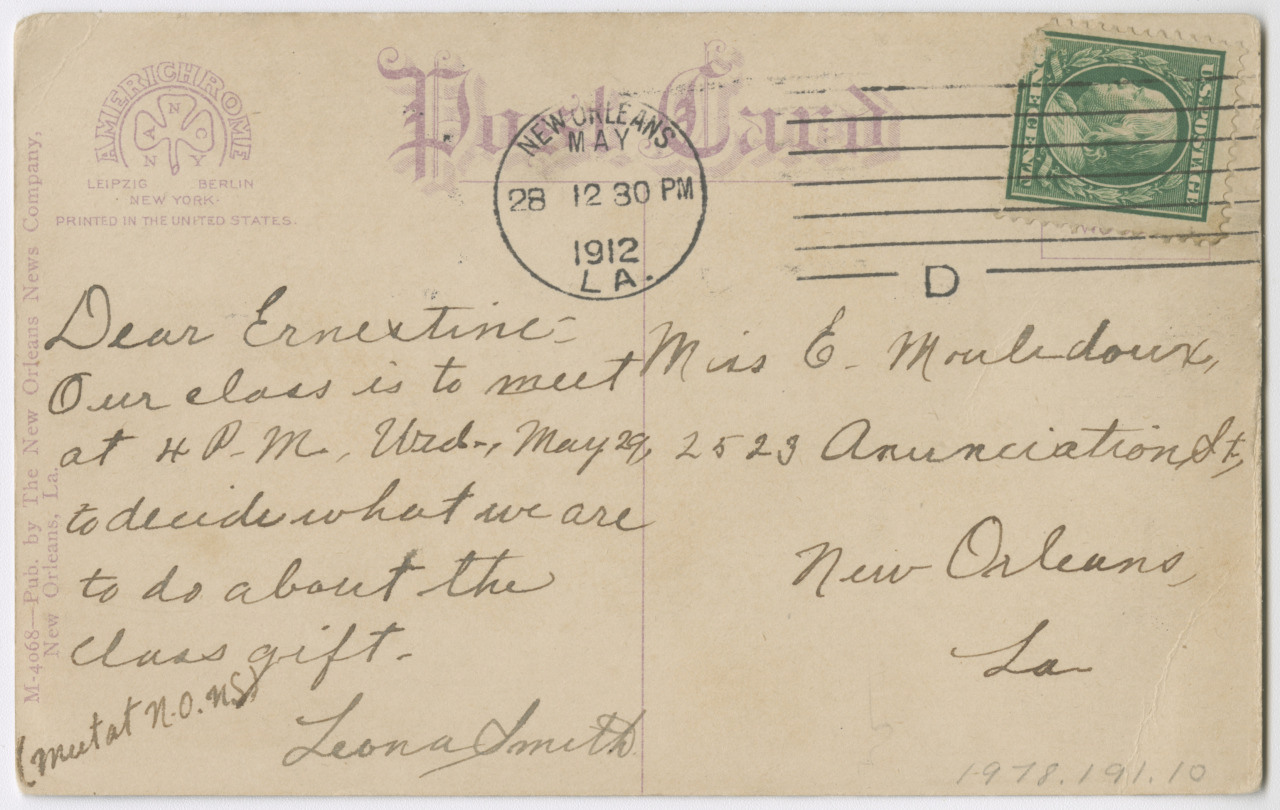 Post Card
AMERICHROME
A N C
N Y
LEIPZIG BERLIN
· NEW YORK·
PRINTED IN THE UNITED STATES.
M-4068—Pub. by The New Orleans News Company,
New Orleans, La.
NEW ORLEANS
MAY
28 12 30 PM
1912
LA.
D
U.S. POSTAGE
ONE CENT
Dear Ernestine-
Our class is to meet
at 4 P.M., Wed., May 29,
to decide what we are
to do about the
class gift.
(Meet at N.O.N.S)
Leona Smith
Miss E. Mouledoux,
2523 Anunciation St,
New Orleans,
La
1978.191.10